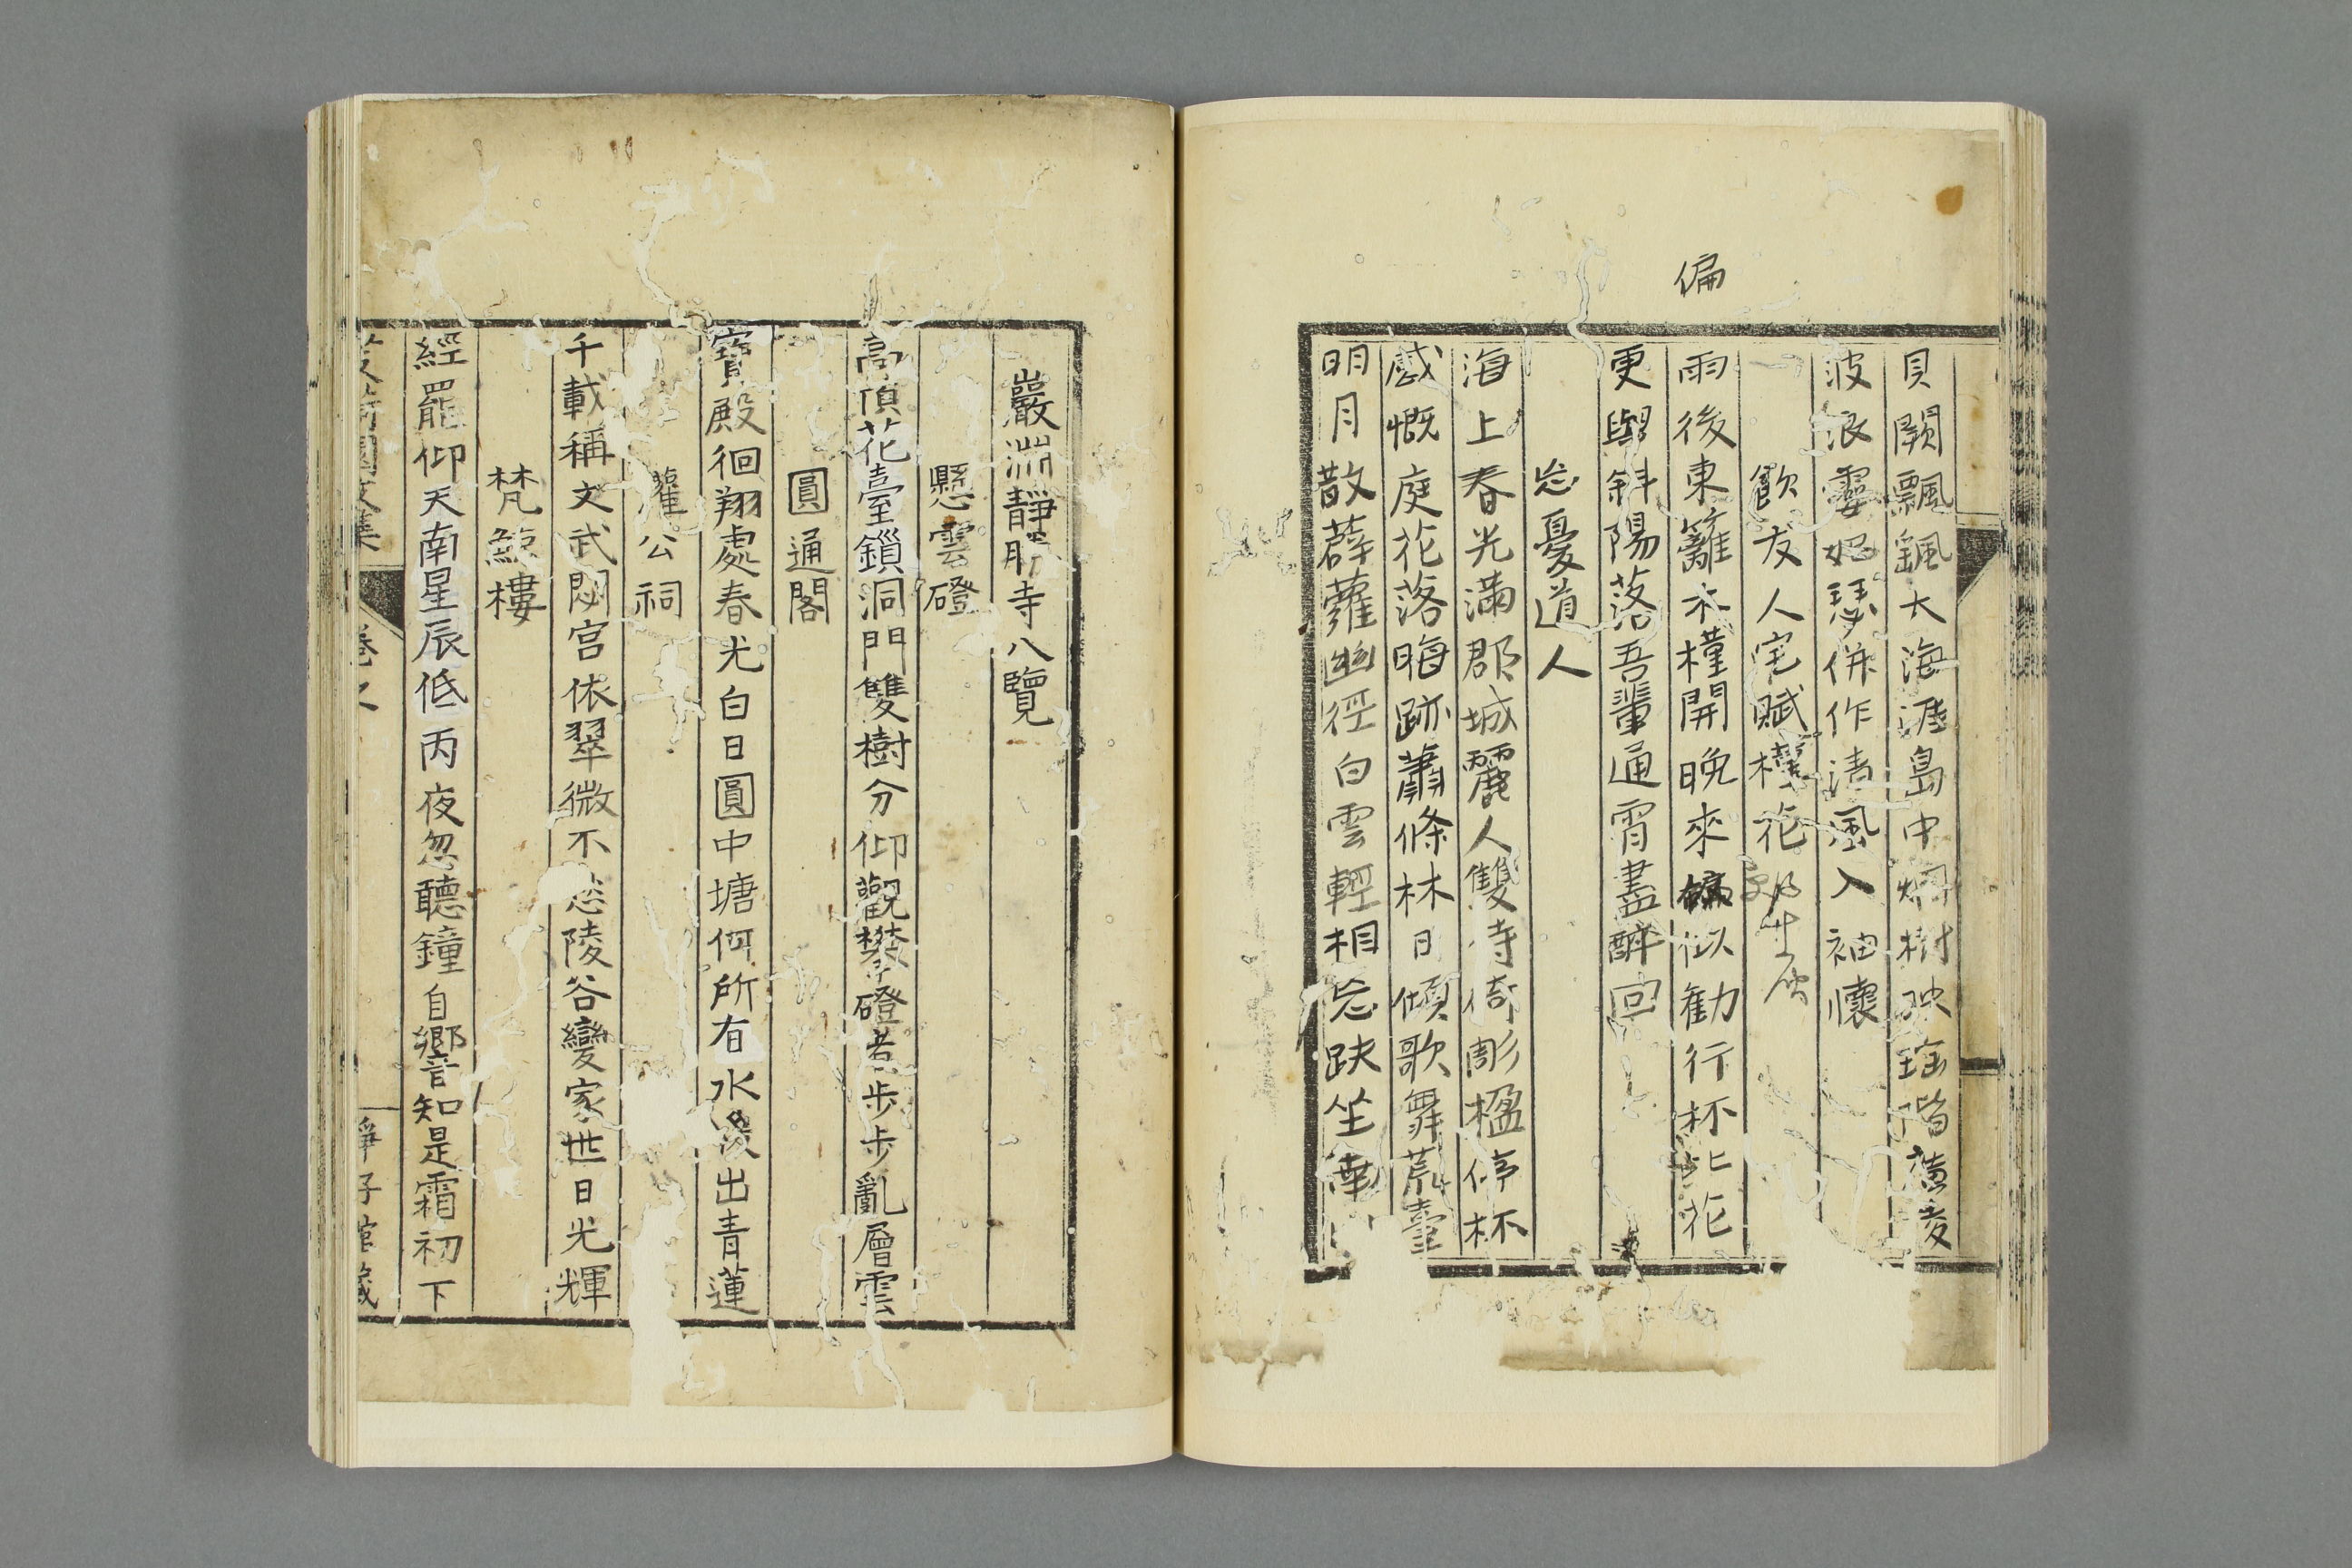 偏
貝闕飄颻大海涯島中烟樹映瑤階廣陵
波浪靈妃瑟併作清風入袖懷
飲友人宅賦槿花
雨後東籬木槿開晚來偏似勸行杯比花
更與斜陽落吾輩通宵盡醉回
忘憂道人
海上春光滿郡城麗人雙侍倚彫楹停杯
感慨庭花落晦跡蕭條林日傾歌舞荒臺
明月散薜蘿幽徑白雲輕相忘趺坐
巖淵靜
寺八覽
懸雲磴
高頂花臺鎖洞門雙樹分仰觀攀磴
步步亂層雲
圓通閣
寶殿徊翔處春光白日圓中塘何所有水
出青蓮
公祠
千載稱文武閟宮依翠微不
陵谷變家世日光輝
梵鯨樓
經罷仰天南星辰低丙夜忽聽鐘自響知是霜初下